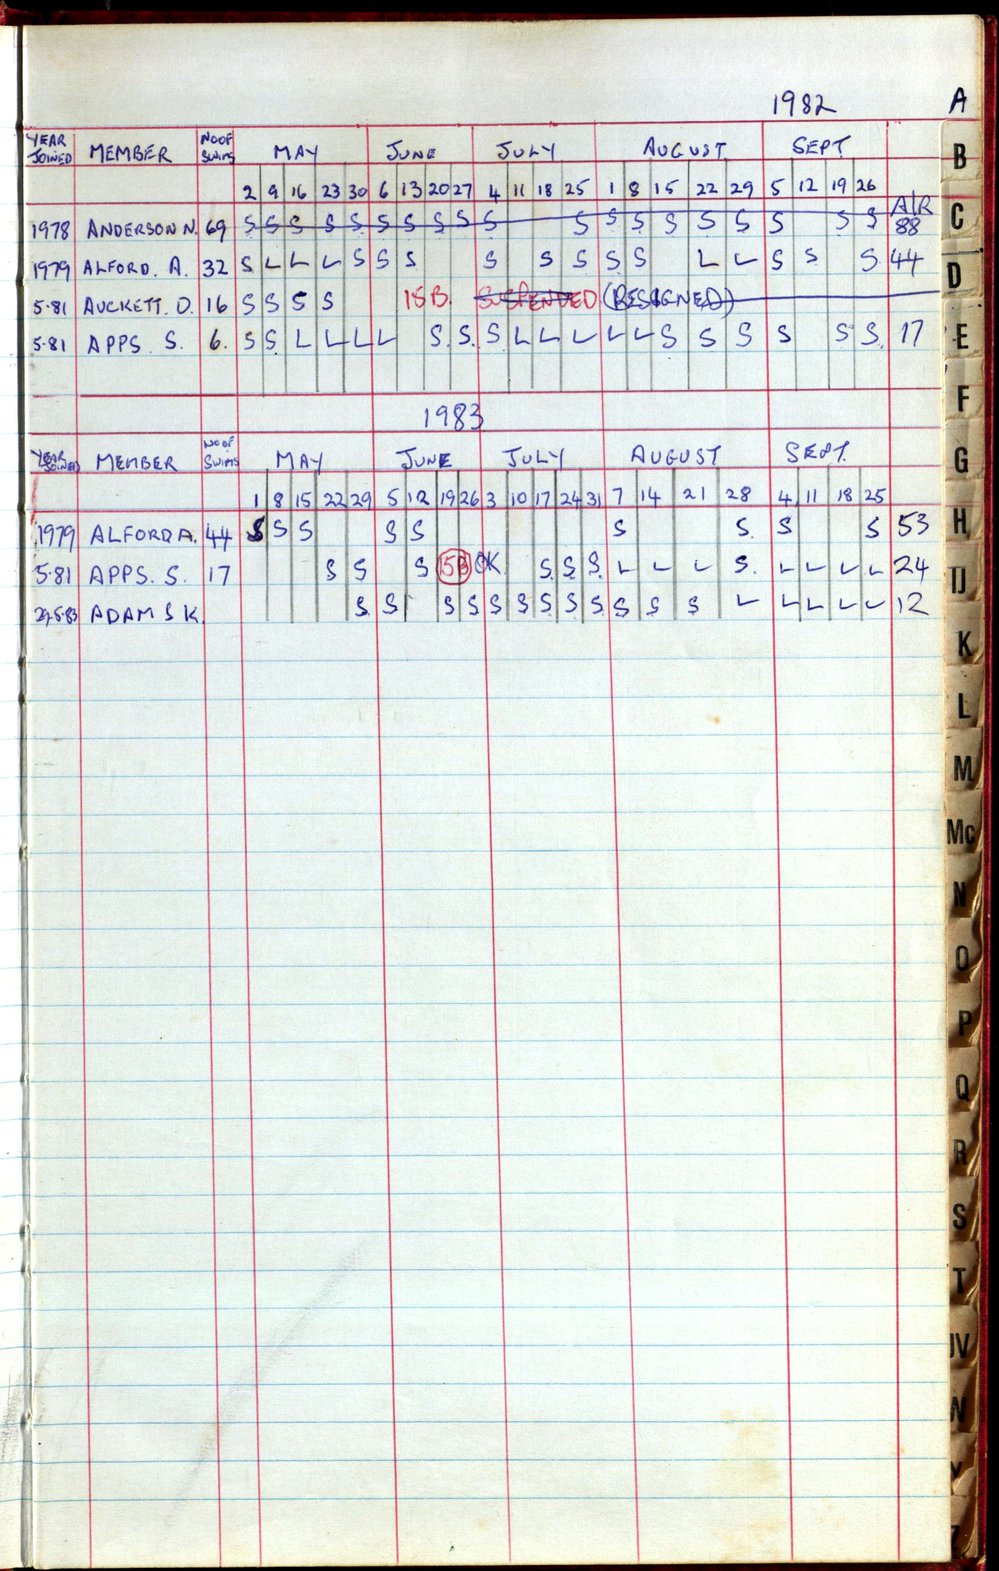 1982
YEAR JOINED MEMBER NO OF SWIMS MAY JUNE JULY AUGUST SEPT
2 9 16 23 30 6 13 20 27 4 11 18 25 1 8 15 22 29 5 12 19 26
1978 ANDERSON N. 69 S S S S S S S S S S S S S S S S S S S A/R 88
1979 ALFORD. A. 32 S L L L S S S S S S S S L L S S S 44
5·81 AUCKETT. D. 16 S S S S 15B. SUSPENDED (RESIGNED)
5·81 APPS. S. 6. S S L L L L S. S. S L L L L L S S S S S S S. 17
1983
YEAR JOINED MEMBER NO OF SWIMS MAY JUNE JULY AUGUST SEPT.
1 8 15 22 29 5 12 19 26 3 10 17 24 31 7 14 21 28 4 11 18 25
1979 ALFORD A. 44 S S S S S S S. S S 53
5·81 APPS. S. 17 S S S 15B OK. S S S L L L S. L L L L 24
29·5·83 ADAMS K. S S S S S S S S S S S S L L L L L 12
A
B
C
D
E
F
G
H
IJ
K
L
M
Mc
N
O
P
Q
R
S
T
UV
W
Y
Z